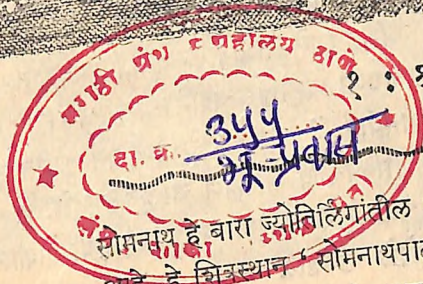 मराठी ग्रंथ संग्रहालय ठाणे
१ :
दा. क्र. ३५५
भू-प्रवास
सोमनाथ हे बारा ज्योतिर्लिंगांतील
आहे. हे शिवस्थान ' सोमनाथपा